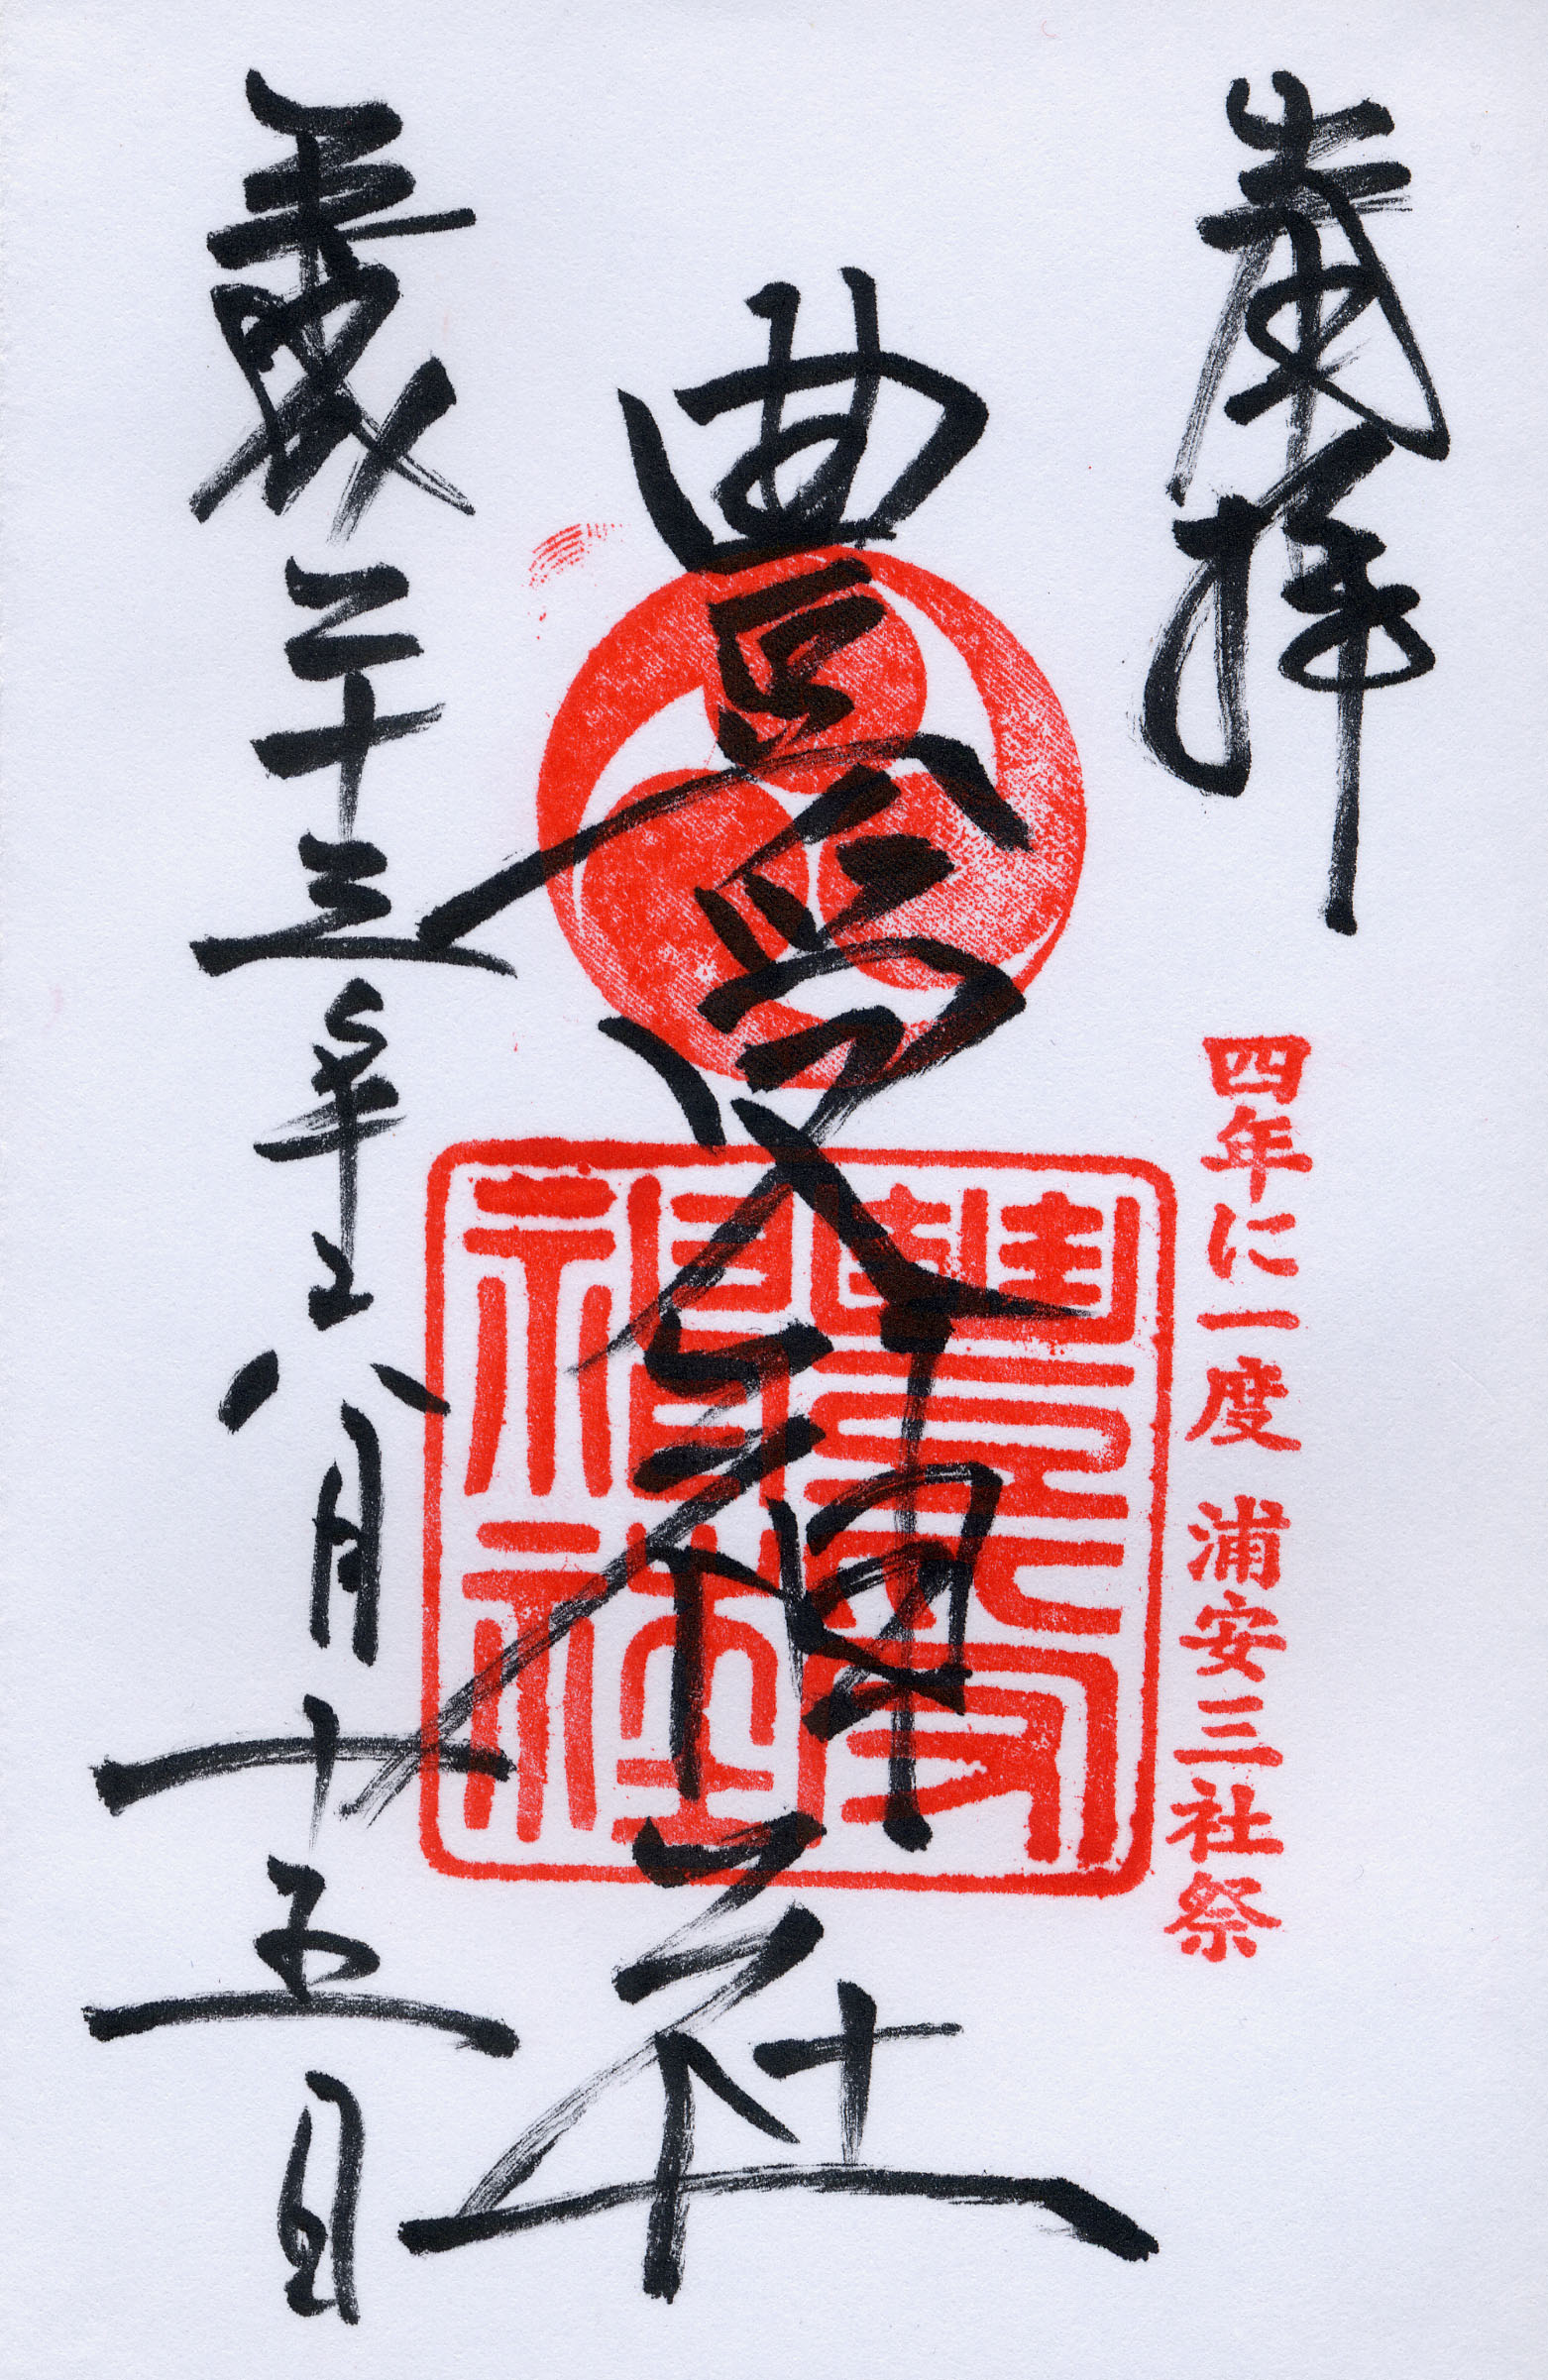 奉拝
四年に一度 浦安三社祭
豊受神社
豐受神社
平成二十三年六月十五日